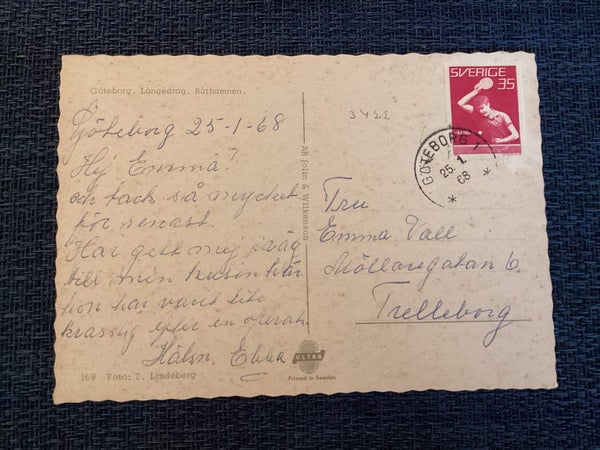 Göteborg. Långedrag. Båthamnen.
Göteborg 25-1-68
Hej Emma!
och tack så mycket
för senast
Har gett mej iväg
till min kusen här
hon har varit lite
krassug efter en operati
Häls, Ebba
169 Foto: T. Lindeberg
AB Jolin & Wilkenson
ULTRA
Printed in Sweden
3422
SVERIGE
35
GÖTEBORG 1
25. 1.
68
Fru
Emma Vall
Möllaregatan 6.
Trelleborg